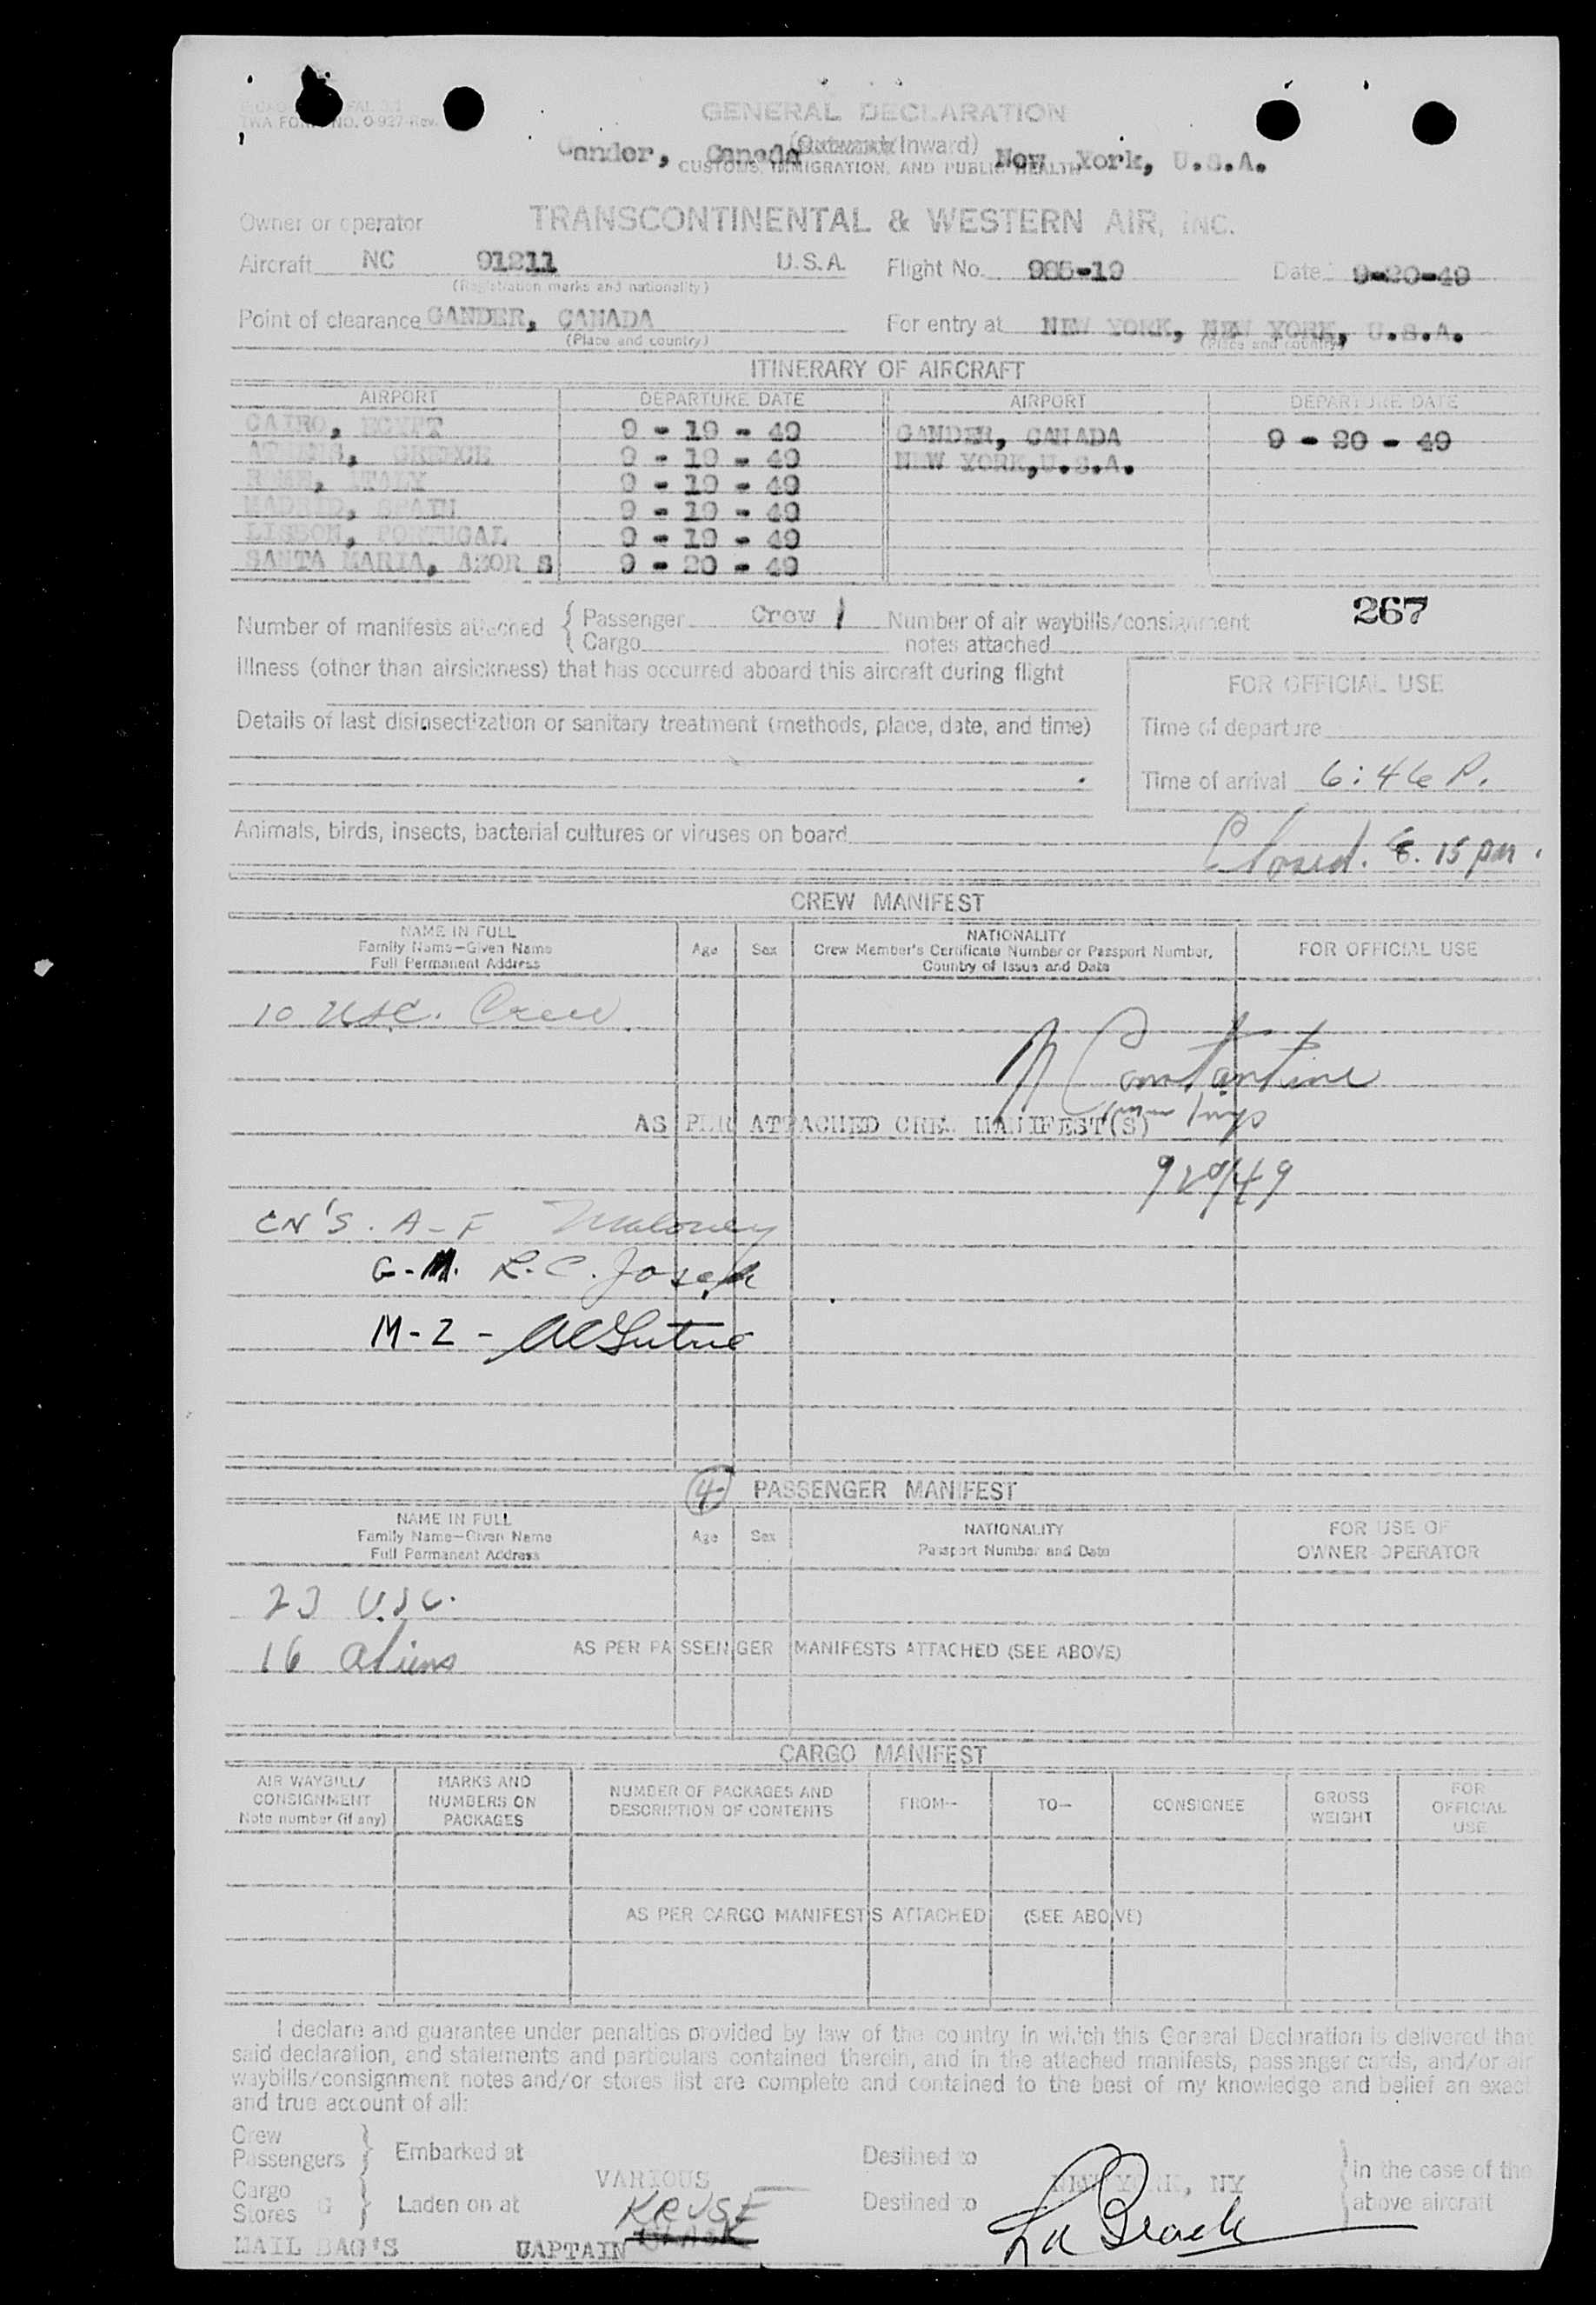 TWA FORM NO. 0-927-Rev.
GENERAL DECLARATION
(Outward/Inward)
Gander, Canada New York, U.S.A.
CUSTOMS, IMMIGRATION, AND PUBLIC HEALTH
Owner or operator TRANSCONTINENTAL & WESTERN AIR, INC.
Aircraft NC 91211 U.S.A. Flight No. 985-19 Date 9-20-49
(Registration marks and nationality)
Point of clearance GANDER, CANADA For entry at NEW YORK, NEW YORK, U.S.A.
(Place and country) (Place and country)
ITINERARY OF AIRCRAFT
AIRPORT DEPARTURE DATE AIRPORT DEPARTURE DATE
CAIRO, EGYPT 9 - 19 - 49 GANDER, CANADA 9 - 20 - 49
ATHENS, GREECE 9 - 19 - 49 NEW YORK,U.S.A.
ROME, ITALY 9 - 19 - 49
MADRID, SPAIN 9 - 19 - 49
LISBON, PORTUGAL 9 - 19 - 49
SANTA MARIA, AZOR S 9 - 20 - 49
267
Number of manifests attached { Passenger Crew 1 Number of air waybills/consignment
Cargo notes attached
Illness (other than airsickness) that has occurred aboard this aircraft during flight
FOR OFFICIAL USE
Details of last disinsectization or sanitary treatment (methods, place, date, and time)
Time of departure
Time of arrival 6:46 P.
Animals, birds, insects, bacterial cultures or viruses on board
Closed. 8. 15 pm.
CREW MANIFEST
NAME IN FULL
Family Name—Given Name
Full Permanent Address
Age Sex
NATIONALITY
Crew Member's Certificate Number or Passport Number,
Country of Issue and Date
FOR OFFICIAL USE
10 USC. Crew
N Constantine
Imm Insp
AS PER ATTACHED CREW MANIFEST(S)
9/20/49
CN'S. A-F Maloney
G-M. R.C. Joseph
M-Z -
4 PASSENGER MANIFEST
NAME IN FULL
Family Name—Given Name
Full Permanent Address
Age Sex
NATIONALITY
Passport Number and Date
FOR USE OF
OWNER-OPERATOR
23 U.S.C.
16 aliens AS PER PASSENGER MANIFESTS ATTACHED (SEE ABOVE)
CARGO MANIFEST
AIR WAYBILL/
CONSIGNMENT
Note number (if any)
MARKS AND
NUMBERS ON
PACKAGES
NUMBER OF PACKAGES AND
DESCRIPTION OF CONTENTS
FROM— TO— CONSIGNEE
GROSS
WEIGHT
FOR
OFFICIAL
USE
AS PER CARGO MANIFESTS ATTACHED (SEE ABOVE)
I declare and guarantee under penalties provided by law of the country in which this General Declaration is delivered that
said declaration, and statements and particulars contained therein, and in the attached manifests, passenger cards, and/or air
waybills/consignment notes and/or stores list are complete and contained to the best of my knowledge and belief an exact
and true account of all:
Crew
Passengers } Embarked at Destined to } in the case of the
VARIOUS NEW YORK, NY
Cargo
Stores } Laden on at KRUSE Destined to } above aircraft
MAIL BAG'S CAPTAIN